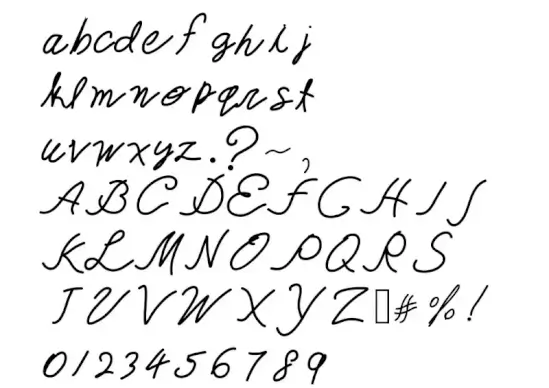 abcdefghij
klmnopqrst
uvwxyz.?~,
ABCDEFGHIJ
KLMNOPQRS
TUVWXYZ▯#%!
0123456789